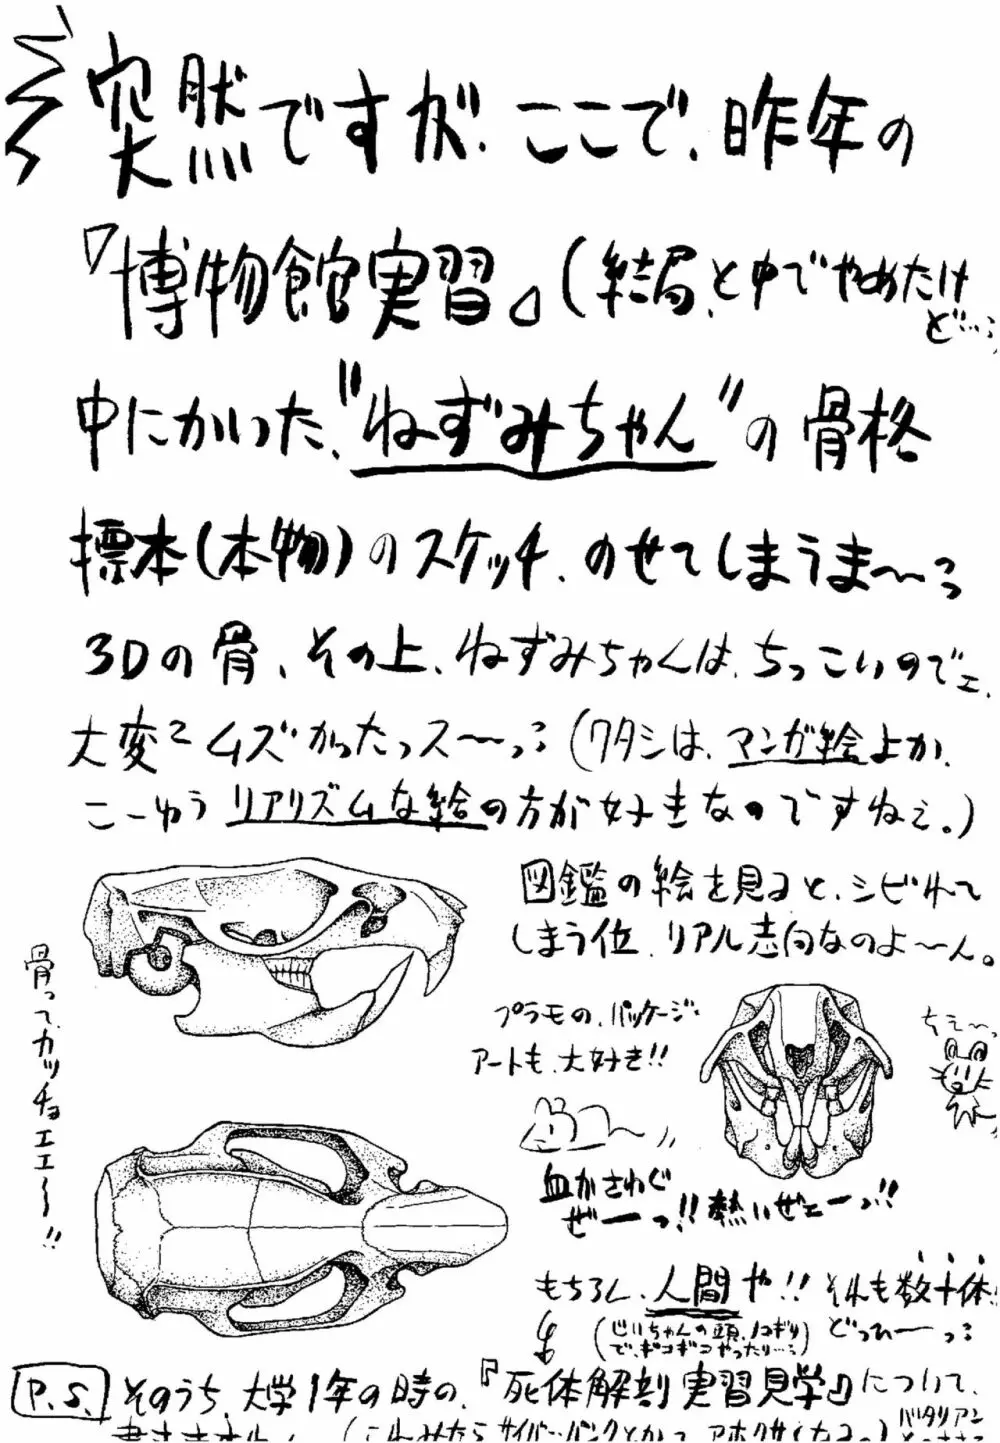 突然ですが、ここで、昨年の
『博物館実習』(結局、と中でやめたけ
ど…)
中にかいた、"ねずみちゃん"の骨格
標本(本物)のスケッチ、のせてしまうま〜っ
3Dの骨、その上、ねずみちゃんは、ちっこいのでェ、
大変でムズかったっス〜っ(ワタシは、マンガ絵よか、
こーゆうリアリズムな絵の方が好きなのですねぇ。)
図鑑の絵を見ると、シビれて
しまう位、リアル志向なのよ〜ん。
骨って、カッチョエエ〜!!
プラモの、パッケージ
アートも、大好き!!
ちぇ〜っ
血がさわぐ
ぜーっ!! 熱いぜェーっ!!
もちろん、人間や!! それも数十体!!
(じいちゃんの頭、ノコギリ
で、ギコギコやったり…) どっひーっ
P.S. そのうち、大学1年の時の、『死体解剖実習見学』について、
バタリアン